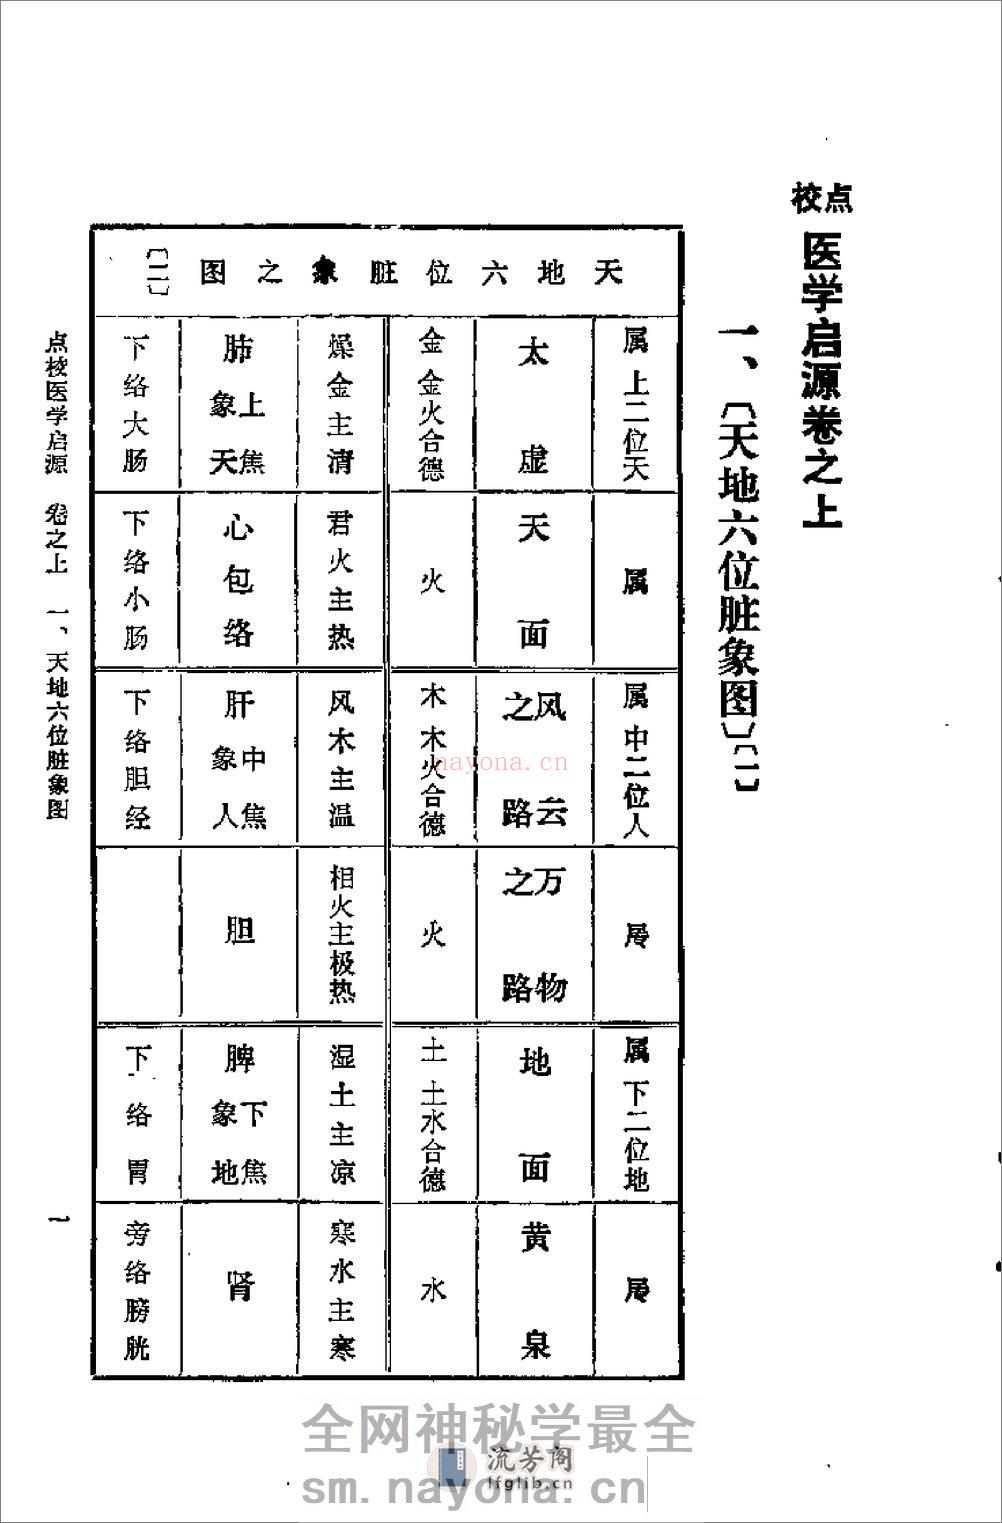 点校
医学启源卷之上
一、〔天地六位脏象图〕〔一〕
天地六位脏象之图〔二〕
属上二位天
太虚
金 金火合德
燥金主清
肺 上焦 象天
下络大肠
属
天面
火
君火主热
心包络
下络小肠
属中二位人
风云之路
木 木火合德
风木主温
肝 中焦 象人
下络胆经
属
万物之路
火
相火主极热
胆
属下二位地
地面
土 土水合德
湿土主凉
脾 下焦 象地
下络胃
属
黄泉
水
寒水主寒
肾
旁络膀胱
点校医学启源 卷之上 一、天地六位脏象图
一
nayona.cn
全网神秘学最全
流芳阁
lfglib.cn
sm.nayona.cn